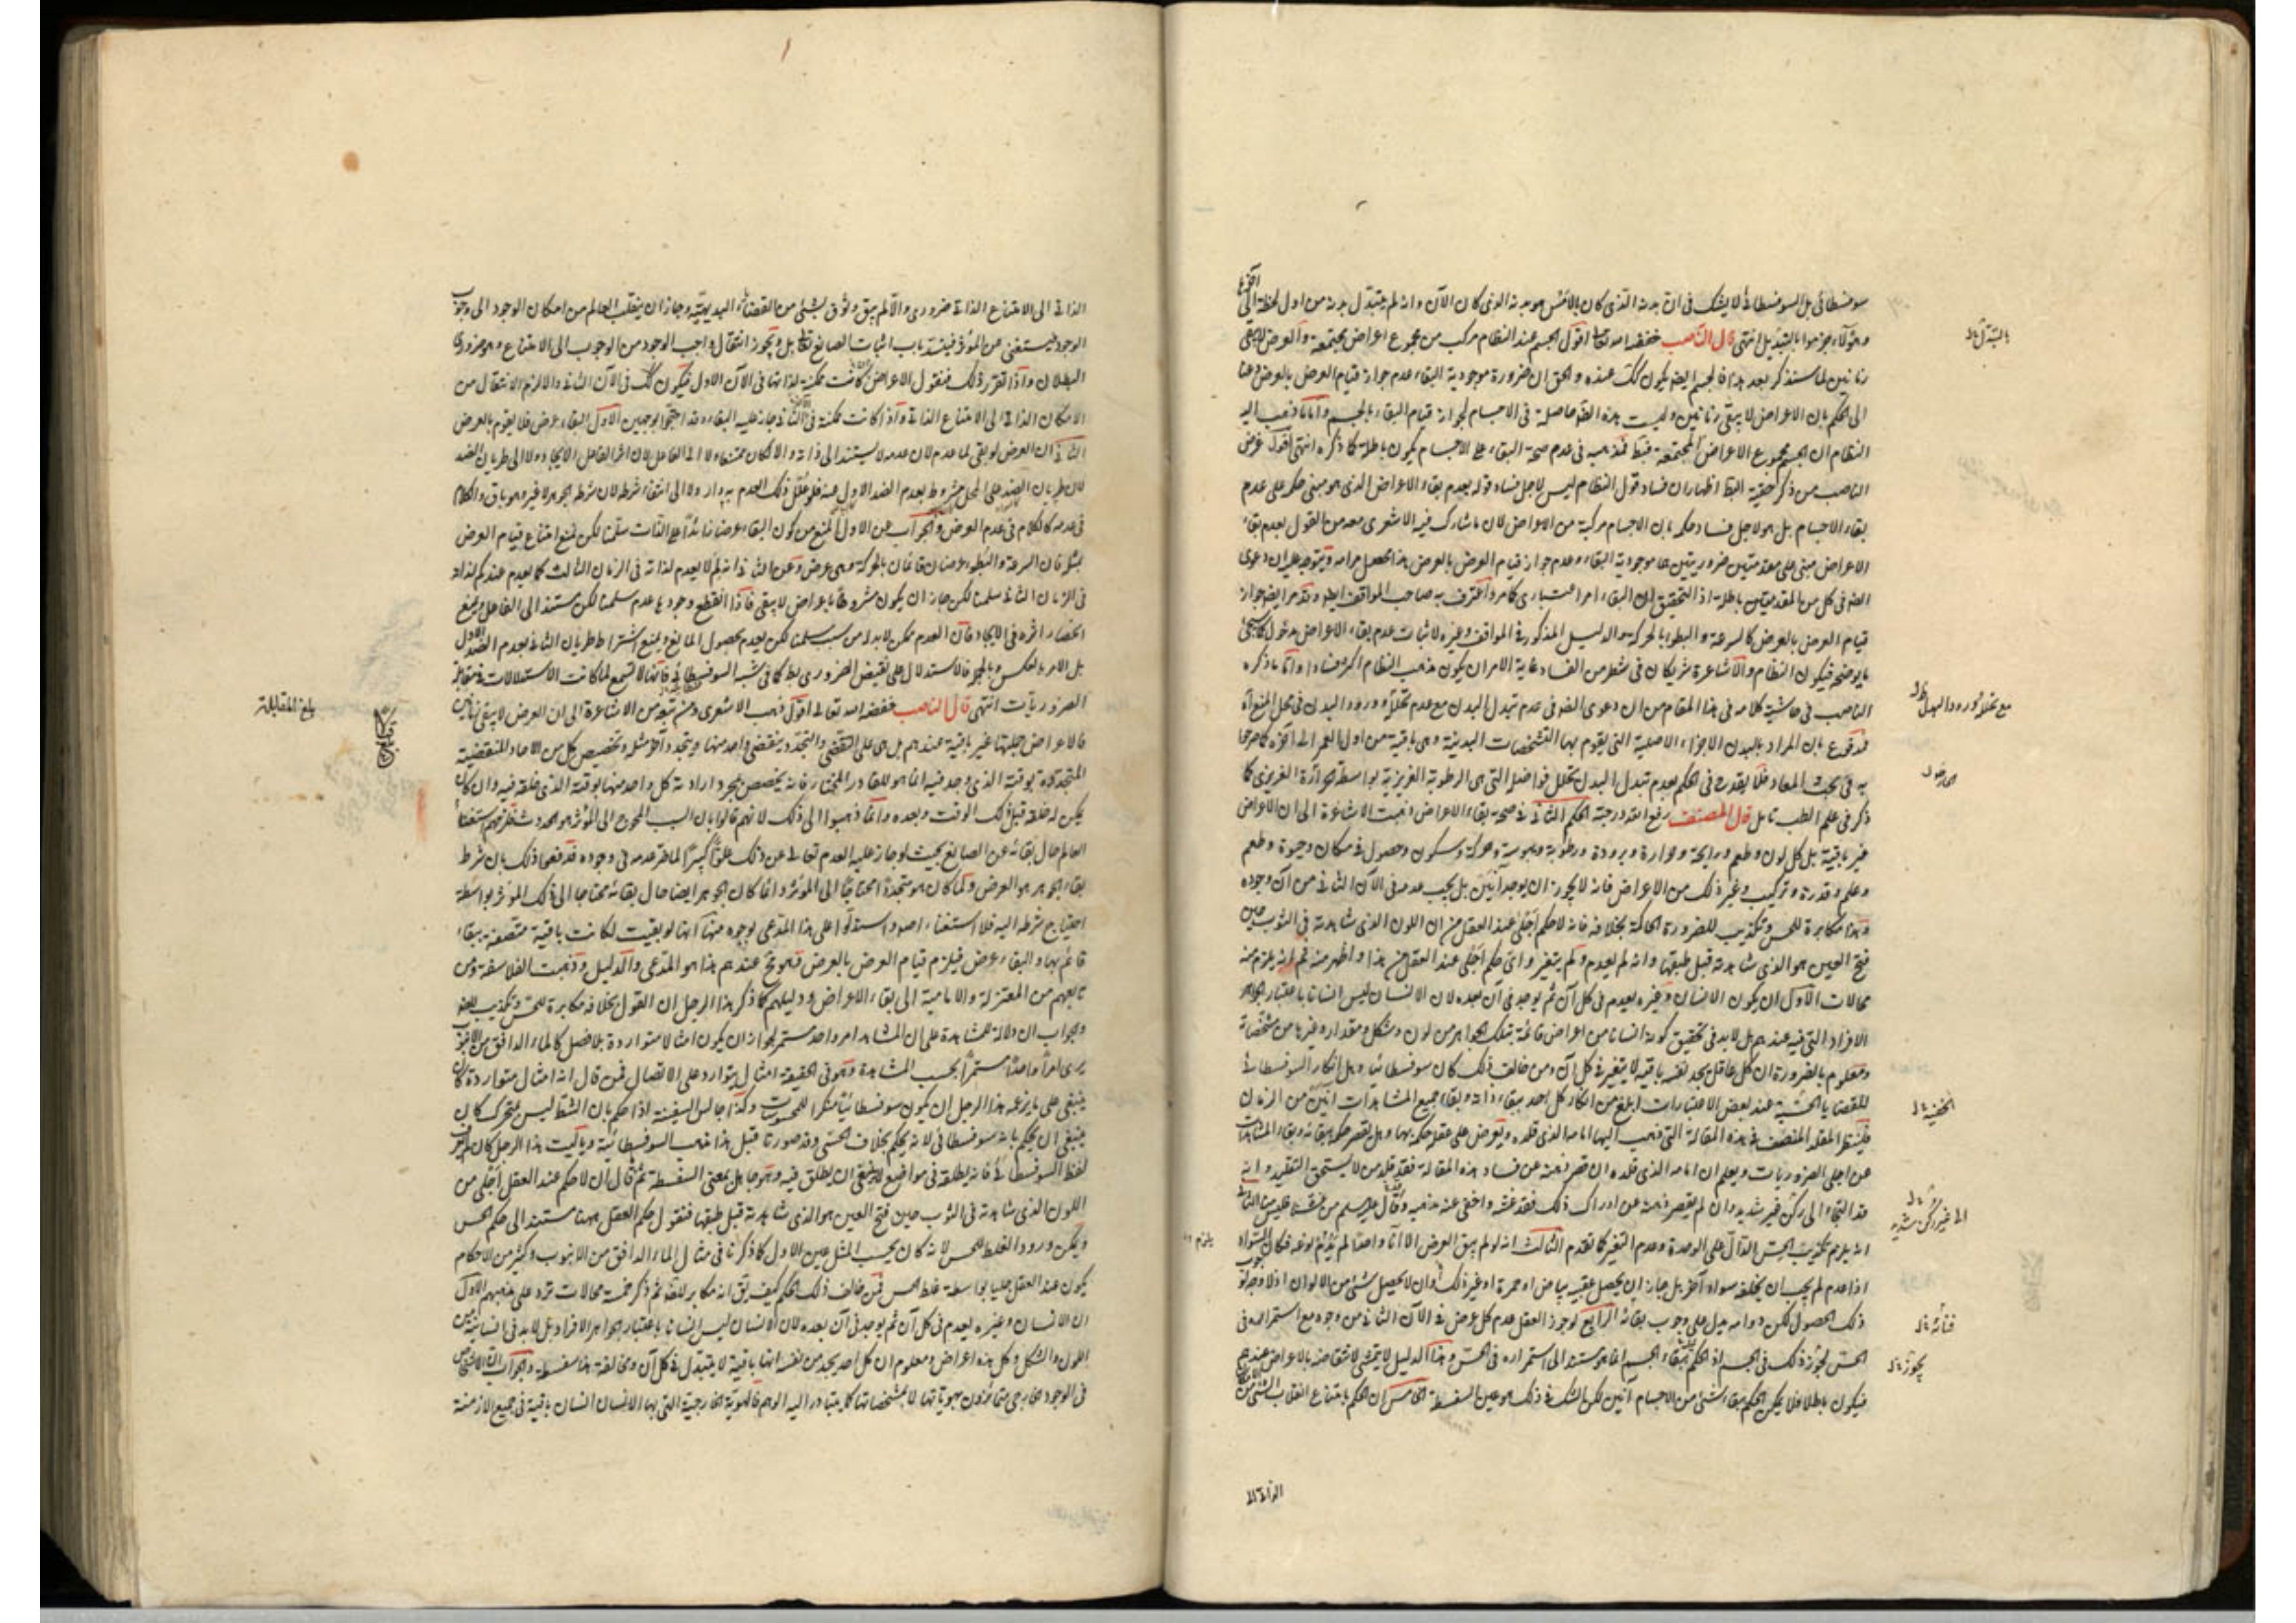 سوفسطائي بل السوفسطائي لا يشك في ان بدنه الذي كان بالامس هو بدنه الذي كان الآن وانه لم يتبدل بدنه من اول لحظة الى آخرها
وهؤلاء جزموا بالتبديل انتهى قال الناصب خفضه الله اقول الجسم عند النظام مركب من مجموع اعراض مجتمعة والعرض لا يبقى
زمانين لما سنذكر بعد هذا فالجسم ايضا يكون كك عنده والحق ان ضرورة موجودية البقاء وعدم جواز قيام العرض بالعرض دعتا
الى الحكم بان الاعراض لا يبقى زمانين وليست هذه الضرورة حاصلة في الاجسام لجواز قيام البقاء بالجسم واما ما ذهب اليه
النظام ان الجسم مجموع الاعراض المجتمعة فبط فمذهبه في عدم صحة البقاء على الاجسام يكون باطلا كما ذكره انتهى اقول غرض
الناصب من ذكر اظهار ان فساد قول النظام ليس لاجل فساد قوله بعدم بقاء الاعراض الذي هو مبنى حكمه على عدم
بقاء الاجسام بل هو لاجل فساد حكمه بان الاجسام مركبة من الاعراض لان ما شارك فيه الاشعرى معه من القول بعدم بقاء
الاعراض مبنى على مقدمتين ضروريتين هما موجودية البقاء وعدم جواز قيام العرض بالعرض هذا محصل مرامه ويتوجه عليه ان دعوى
الضرورة في كل من المقدمتين باطلة اذ التحقيق ان البقاء امر اعتبارى كما مر واعترف به صاحب المواقف ايضا وقد مر ايضا جواز
قيام العرض بالعرض كالسرعة والبطوء بالحركة والدليل المذكور في المواقف وغيره لاثبات عدم بقاء الاعراض مدخول كما سيجئ
ما يوضحه فيكون النظام والاشاعرة شريكان في شطر من الفساد غاية الامر ان يكون مذهب النظام اكثر فسادا واما ما ذكره
الناصب في حاشية كلامه في هذا المقام من ان دعوى الضرورة في عدم تبدل البدن مع عدم تحلله وورود البدل في محل المنع آه
فمدفوع بان المراد بالبدن الاجزاء الاصلية التي يقوم بها التشخصات البدنية وهي باقية من اول العمر الى آخره كما صرحوا
به في بحث المعاد فلا يقدح في الحكم بعدم تبدل البدن تحلل فواضله التي هي الرطوبة الغريزية بواسطة الحرارة الغريزى كما
ذكر في علم الطب تامل قال المصنف رفع الله درجته الحكم الثاني في صحة بقاء الاعراض ذهبت الاشاعرة الى ان الاعراض
غير باقية بل كل لون وطعم ورايحة وحرارة وبرودة ورطوبة ويبوسة وحركة وسكون وحصول في مكان وحيوة وطعم
وعلم وقدرة وتركيب وغير ذلك من الاعراض فانه لا يجوز ان يوجد آنين بل يجب عدمه في الآن الثاني من آن وجوده
وهذا مكابرة للحس وتكذيب للضرورة الحاكمة بخلافه فانه لا حكم اجلى عند العقل من ان اللون الذى شاهدته في الثوب حين
فتح العين هو الذى شاهدته قبل طبقها وانه لم يعدم ولم يتغير واى حكم اجلى عند العقل من هذا واظهر منه ثم انه يلزم منه
محالات الاول ان يكون الانسان وغيره يعدم في كل آن ثم يوجد في آن بعده لان الانسان ليس انسانا باعتبار الجواهر
الافراد التي فيه عندهم بل لا بد في تحقيق كونه انسانا من اعراض قائمة بتلك الجواهر من لون وشكل ومقدار وغيرها من مشخصاته
ومعلوم بالضرورة ان كل عاقل يجد نفسه باقية لا يتغير في كل آن ومن خالف ذلك كان سوفسطائيا وهل انكار السوفسطائي
للقضايا الحسية عند بعض الاعتبارات ابلغ من انكار كل احد بقاء ذاته وبقاء جميع المشاهدات آنين من الزمان
فلينظر المقلد المنصف في هذه المقالة التي ذهب اليها امامه الذى قلده ويعرض على عقله حكمه بها وهل يقصر حكم بقائه وبقاء المشاهدات
عن اجلى الضروريات ويعلم ان امامه الذى قلده ان قصر ذهنه عن فساد هذه المقالة فقد قلد من لا يستحق التقليد وانه
قد التجأ الى ركن غير شديد وان لم يقصر ذهنه عن ادراك ذلك فقد غشه واخفى عنه مذهبه وقال عليه السلم من غشنا فليس منا الثاني
انه يلزم تكذيب الحس الدال على الوحدة وعدم التغير كما تقدم الثالث انه لو لم يبق العرض الا آنا واحدا لم يدم نوعه فكان السواد
اذا عدم لم يجب ان يخلفه سواد آخر بل جاز ان يحصل عقيبه بياض او حمرة او غير ذلك او ان لا يحصل شئ من الالوان اذ لا وجه لوجوب
ذلك الحصول لكن دوامه يدل على وجوب بقائه الرابع لو جوز العقل عدم كل عرض في الآن الثاني من وجوده مع استمراره في
الحس لجوز ذلك في الجسم اذ الحكم ببقاء الجسم انما هو مستند الى استمراره في الحس وهذا الدليل لا يتمشى لانتقاضه بالاعراض عندهم
فيكون باطلا فلا يمكن الحكم ببقاء شئ من الاجسام آنين لكن الشك في ذلك هو عين السفسطة الخامس ان الحكم بامتناع انقلاب الشئ من الامكان
الذاتي الى
بالتبدل
مع تحلله وورود البدل
الحسية
الى غير ركن شديد
يلزم
بقائه
يجوز
الذاتي الى الامتناع الذاتي ضرورى والا لم يبق وثوق بشئ من القضايا البديهية وجاز ان ينقلب العالم من امكان الوجود الى وجوب
الوجود فيستغنى عن المؤثر فينسد باب اثبات الصانع تعالى بل ويجوز انتقال واجب الوجود من الوجوب الى الامتناع وهو ضرورى
البطلان واذا تقرر ذلك فنقول الاعراض كانت ممكنة لذاتها في الآن الاول فيكون كك في الآن الثاني والا لزم الانتقال من
الامكان الذاتي الى الامتناع الذاتي واذا كانت ممكنة في الثاني جاز عليه البقاء وقد احتجوا بوجهين الاول البقاء عرض فلا يقوم بالعرض
الثاني ان العرض لو بقى لما عدم لان عدمه لا يستند الى ذاته والا لكان ممتنعا ولا الى الفاعل لان اثر الفاعل الايجاد ولا الى طريان الضد
لان طريان الضد على المحل مشروط بعدم الضد الاول عنه فلو علل ذلك العدم به دار ولا الى انتفاء شرطه لان شرطه الجوهر لا غير وهو باق والكلام
في عدمه كالكلام في عدم العرض والجواب عن الاول المنع من كون البقاء عرضا زائدا على الذات سلمنا لكن نمنع امتناع قيام العرض
بمثله فان السرعة والبطوء عرضان قائمان بالحركة وهي عرض وعن الثاني انه لم لا يعدم لذاته في الزمان الثالث كما يعدم عندكم لذاته
في الزمان الثاني سلمنا لكن جاز ان يكون مشروطا باعراض لا يبقى فاذا انقطع وجودها عدم سلمنا لكن مستند الى الفاعل ونمنع
انحصار اثره في الايجاد فان العدم ممكن لا بد له من سبب سلمنا لكن يعدم بحصول المانع ونمنع اشتراط طريان الثاني بعدم الضد الاول
بل الامر بالعكس وبالجملة فالاستدلال على نقيض الضرورى بط كما في شبه السوفسطائي فانها لا تسمع لما كانت الاستدلالات في مقابلة
الضروريات انتهى قال الناصب خفضه الله تعالى اقول ذهب الاشعرى ومن تبعه من الاشاعرة الى ان العرض لا يبقى زمانين
فالاعراض جملتها غير باقية عندهم بل هي على التقضى والتجدد ينقضى واحد منها ويتجدد آخر مثله وتخصيص كل من الآحاد المنقضية
المتجددة بوقته الذى وجد فيه انما هو للقادر المختار فانه يخصص بمجرد ارادته كل واحد منها بوقته الذى خلقه فيه وان كان
يمكن له خلقه قبل ذلك الوقت وبعده وانما ذهبوا الى ذلك لانهم قالوا بان السبب المحوج الى المؤثر هو الحدوث فلزمهم استغناء
العالم حال بقائه عن الصانع بحيث لو جاز عليه العدم تعالى عن ذلك علوا كبيرا لما ضر عدمه في وجوده فدفعوا ذلك بان شرط
بقاء الجوهر هو العرض ولما كان هو متجددا محتاجا الى المؤثر دائما كان الجوهر ايضا حال بقائه محتاجا الى ذلك المؤثر بواسطة
احتياج شرطه اليه فلا استغناء اصلا واستدلوا على هذا المدعى بوجوه منها انها لو بقيت لكانت باقية متصفة ببقاء
قائم بها والبقاء عرض فيلزم قيام العرض بالعرض وهو مح عندهم هذا هو المدعى والدليل وذهبت الفلاسفة ومن
تابعهم من المعتزلة والامامية الى بقاء الاعراض ودليلهم كما ذكر هذا الرجل ان القول بخلافه مكابرة للحس وتكذيب للضرورة
والجواب ان لا دلالة للمشاهدة على ان المشاهد امر واحد مستمر لجواز ان يكون امثالا متواردة بلا فصل كالماء الدافق من الانبوب
يرى امرا واحدا مستمرا بحسب المشاهدة وهو في الحقيقة امثال يتوارد على الاتصال فمن قال انه امثال متواردة كان
ينبغي على ما يزعمه هذا الرجل ان يكون سوفسطائيا منكرا للمحسوسات وكذا جالس السفينة اذا حكم بان الشط ليس بمتحرك كان
ينبغي ان يحكم بانه سوفسطائي لانه يحكم بخلاف الحس وقد صورنا قبل هذا مذهب السوفسطائية وياليت هذا الرجل كان لم يعرف
لفظ السوفسطائي فانه يطلقه في مواضع لا ينبغي ان يطلق فيه وهو جاهل بمعنى السفسطة ثم قال ان لا حكم عند العقل اجلى من
اللون الذى شاهدته في الثوب حين فتح العين هو الذى شاهدته قبل طبقها فنقول حكم العقل ههنا مستند الى حكم الحس
ويمكن ورود الغلط للحس لانه كان يحسب المثل عين الاول كما ذكرنا في مثال الماء الدافق من الانبوب وكثير من الاحكام
يكون عند العقل جليا بواسطة غلط الحس فمن خالف ذلك الحكم كيف يق انه مكابر للضرورة ثم ذكر خمسة محالات ترد على مذهبهم الاول
ان الانسان وغيره يعدم في كل آن ثم يوجد في آن بعده لان الانسان ليس انسانا باعتبار الجواهر الافراد بل لا بد في انسانيته من
اللون والشكل وكل هذه اعراض ومعلوم ان كل احد يجد من نفسه انها باقية لا يتبدل في كل آن ومخالفة هذا سفسطة والجواب ان الاشخاص
في الوجود الخارجى متمايزون بهوياتها لا بمشخصاتها كما يتبادر اليه الوهم فالهوية الخارجية التي بها الانسان انسان باقية في جميع الازمنة
بلغ المقابلة